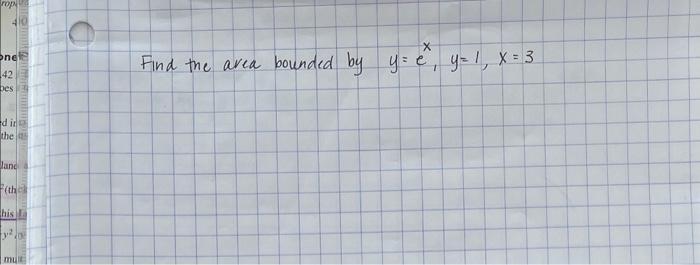 rop
40
one
42
pes
d in
the
lane
(th
his
y²,
mu
Find the area bounded by y = eˣ, y = 1, x = 3